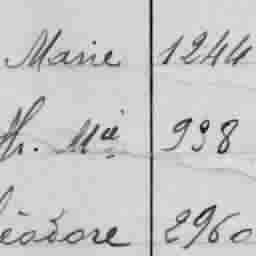 Marie 1244
fr. Mie 998
éodore 2960